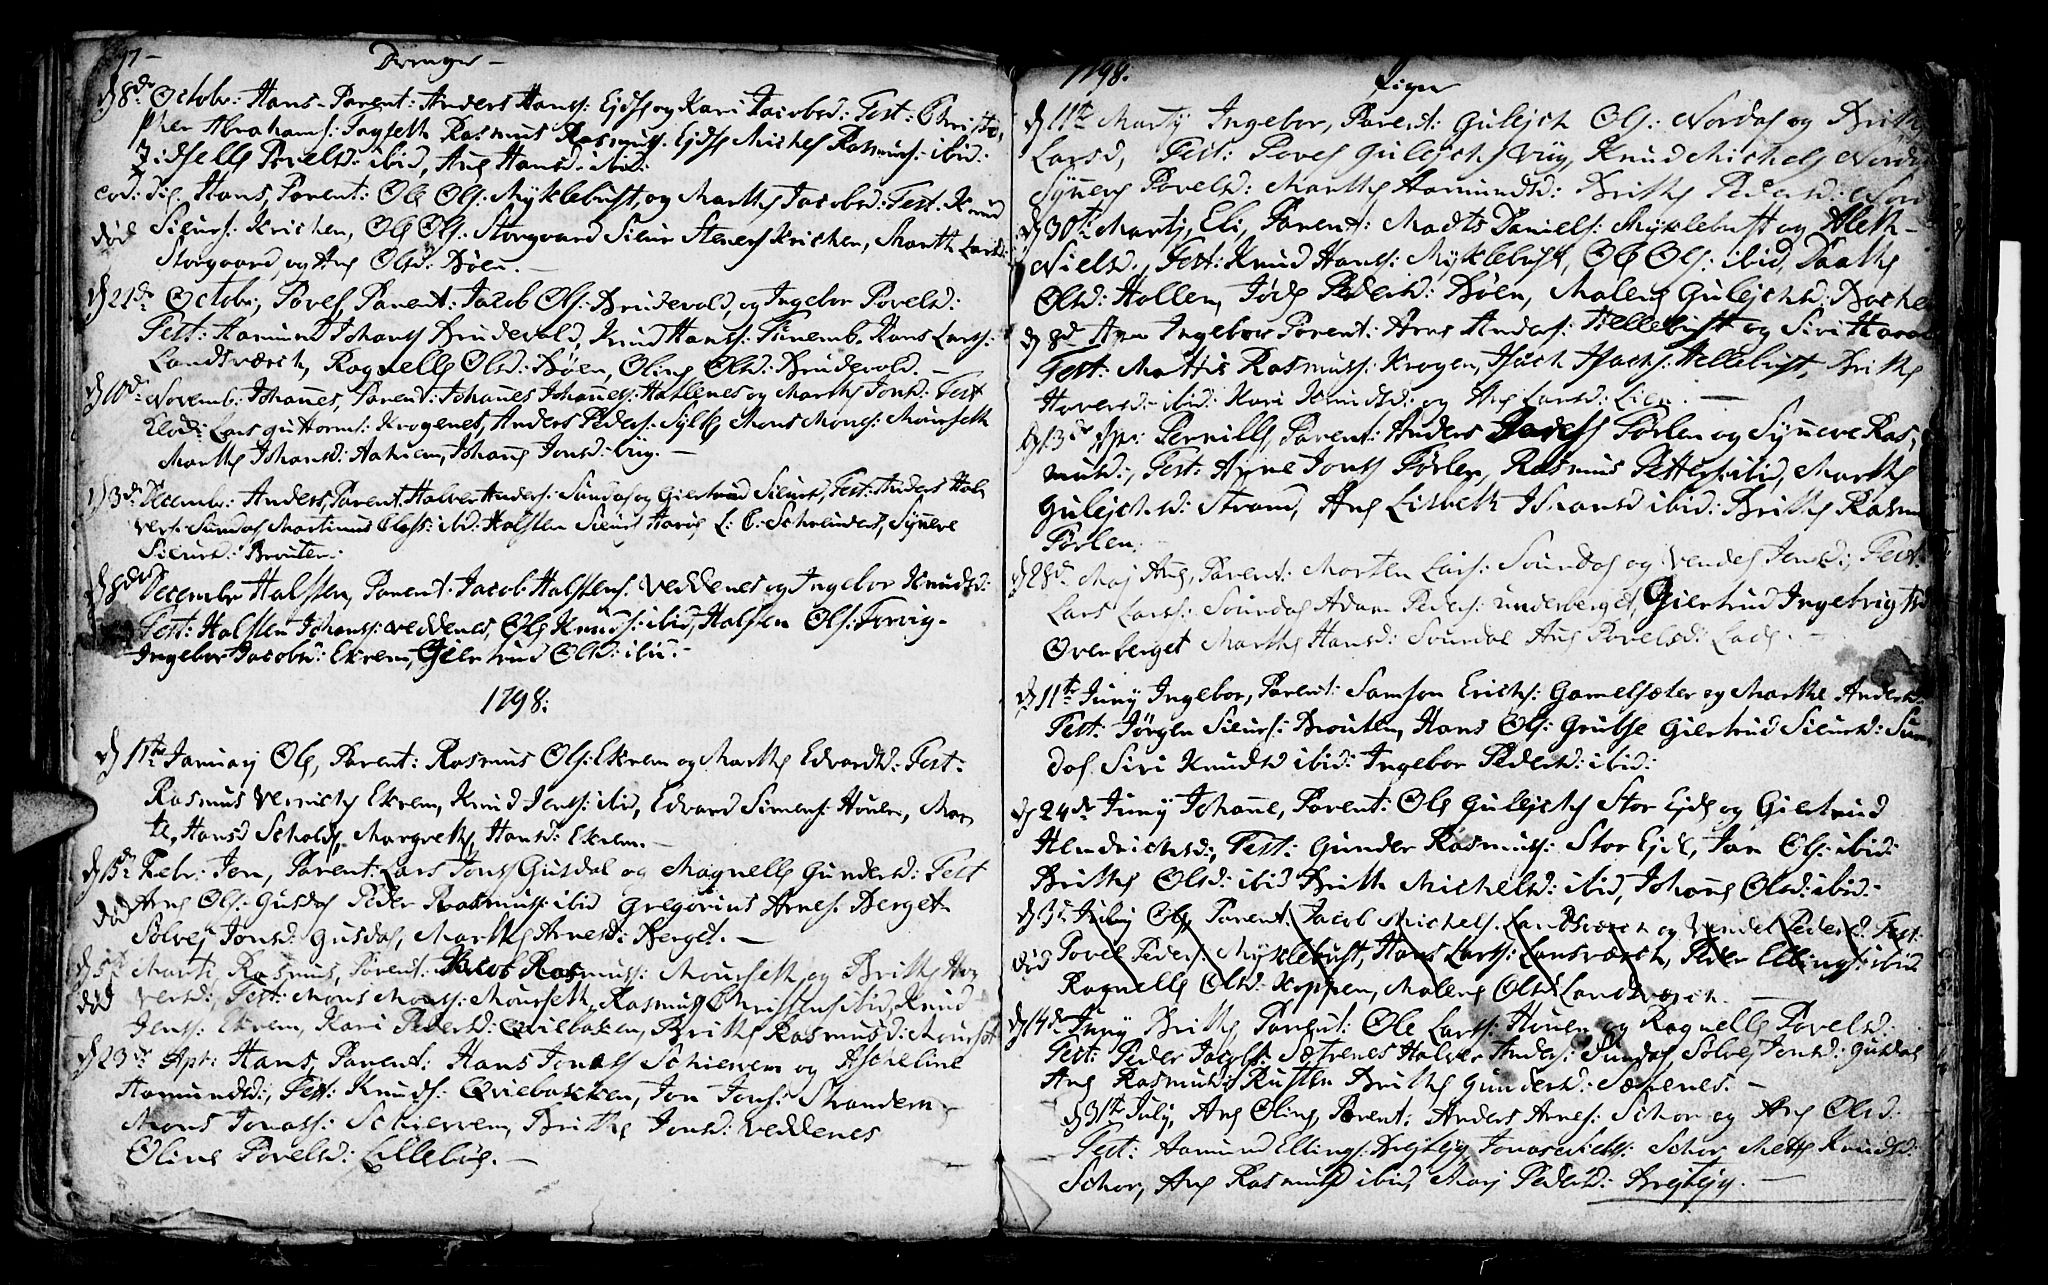 97 -
Drenger -
d 8de Octobr: Hans - Parent: Anders Hans: Ejdse og Kari Jacobsd: Test: Christo,
pher Abrahams: Fagseth Rasmus Rasmuss: Ejdse Michel Rasmus: ibid:
Povelsd: ibid, Ane Hansd: ibid:
eod: die Hans, Parent: Ole Ols: Myklebust, og Marthe Jacobsd: Test: Knud
død Siurs: Krichen, Ole Ols: Storgaard Siur Steners Krichen, Marth Larsd:
Storgaard, og Ane Olsd: Bøen. -
d 21de Octobr, Povel, Parent: Jacob Ols: Brudevold, og Ingebor Povelsd:
Test: Aamund Johans Brudevold, Knud Hans: Hans Lars:
Landsværch, Ragnelle Olsd: Bøen, Oline Olsd: Brudevold. -
d 10de Novemb: Johannes, Parent: Johannes Johannes: Hallenes og Marthe Jonsd: Test
Klod: Lars Guttorms: Krogenes, Anders Peders: Sylte Mons Mons: Mourseth
Marthe Johansd: Aahiem, Johane Jonsd: Vig. -
d 3de Decembr: Anders, Parent: Halver Anders: Sundal og Giertrud Siursd, Test: Anders Hal
vers: Sundal Martinus Clas: ibid: Halsten Siurs Harig L: C: Schreuders, Synneve
Siursd: Brouten.
d 8de Decembr Halsten, Parent: Jacob Halstens: Veddenes og Ingebor Knudsd:
Test: Halsten Johans: Veddenes, Ole Knuds: ibid, Halsten Ols: Torvig -
Ingebor Jacobsd: Ekrem, Giertrud Olsd: ibid: -
1798:
d 1te Januarj Ole, Parent: Rasmus Ols: Ekrem og Marthe Edvardsd: Test:
Rasmus Verrichs Ekrem, Knud Jens: ibid, Edvard Simens: Houen, Mar
te, Hansd Schold, Margrethe, Hansd: Ekrem. -
d 15de Febr: Jen, Parent: Lars Jons Gusdal og Magnelle Gundersd: Test
død Arne Ols: Gusdal Peder Rasmus: ibid Gregorius Arnes: Berget
Solvej Jonsd: Gusdal, Marthe Arnesd: Berget. -
d 5te Martj Rasmus, Parent: Jacob Rasmuss: Mourseth og Brithe Ha
død versd:, Test: Mons Mons: Mourseth Rasmus Christens ibid, Knud
Jens: Ekrem, Kari Pedersd: Qviebakken, Brithe Rasmusd: Mourset
d 23de Apr: Hans, Parent: Hans Jonas Schierem og Ascheline
Hamundsd:, Test: Knuds: Qviebaccken, Jon Jons: Skandem
Mons Jonas: Schierem, Brithe Jonsd: Veddenes
Oline Povelsd: Lillebøe. -
1798.
Piger
d 11te Martij Ingebor, Parent: Gulejch Ols: Nordal og Brithe
Larsd, Test: Povel Gulejchs Viig, Knud Michels Nordal
Synneve Povelsd: Marthe Aamundsd: Brithe Pedersd: Nor
d 30te Martj Eli, Parent: Madts Daniels: Myklebust og Aleth -
Nielsd, Test: Knud Hans: Myklebust, Ole Ols: ibid,
Olsd: Hollen, Pedersd: Bøen, Malene Gulejchsd:
d 8de Apr: Ingebor Parent: Arne Anders: Hellebust og Siri
Test: Mathis Rasmus: Krogen, Isach Isachs: Hellebust, Brithe
Haversd - ibid: Kari Knudsd: og Ane Larsd: Lien. -
d 13de Apr: Pernille, Parent: Anders Farlen og Synneve Ras,
musd:, Test: Arne Jons Farlen, Rasmus Petters ibid, Marthe
Gulejchsd: Strand, Ane Lisbeth Johansd ibid: Brithe Rasmu
Farlen.
d 28de Maj Ane, Parent: Morten Lars: Sourdal og Vendel Jensd:, Test:
Lars Lars: Sourdal Adam Peders: Underberget, Giertrud Ingebrigtsd
Overberget Marthe Hansd: Sourdal Ane Povelsd: Lade. -
d 11te Junij Ingebor, Parent: Samson Erichs: Gamelsæter og Marthe Andersd:
Test: Jørgen Siurs: Brouten, Hans Ols: Grubse Giertrud Siursd: Sun
dal Siri Knudsd ibid: Ingebor Pedersd: ibid:
d 24de Junij Johanne, Parent: Ole Gulejchs Stor Ejde og Giertrud
Hendrichsd:, Test: Gunder Rasmus: Stor Ejde, Jan Ols: ibid:
Brithe Olsd: ibid Brith Michelsd: ibid, Johane Olsd: ibid: -
d 3de Julij Ole Parent: Jacob Michels. Landsværch og Vendel Pedersd Test:
død Povel Peders: Myklebust, Hans Lars: Lansværch, Peder Ellings: ibid
Ragnelle Olsd: Koppen, Malene Olsd Landsværch. -
d 14de Junij Brithe Parent: Ole Lars: Houen og Ragnelle Povelsd:
Test: Peder Jacobs: Sætrenes Halver Anders: Sundal Solvej Jonsd: Gusdal
Ane Rasmusd: Rusten Brithe Gundersd: Sætrenes. -
d 31te Julij, Ane Oline, Parent: Anders Arnes: Schor og Ane Olsd:
Test: Aamund Ellings: Brejteig Jonas Niels: Schor Mette Knudsd:
Schor, Ane Rasmusd ibid, Marj Pedersd: Brejtejg. -